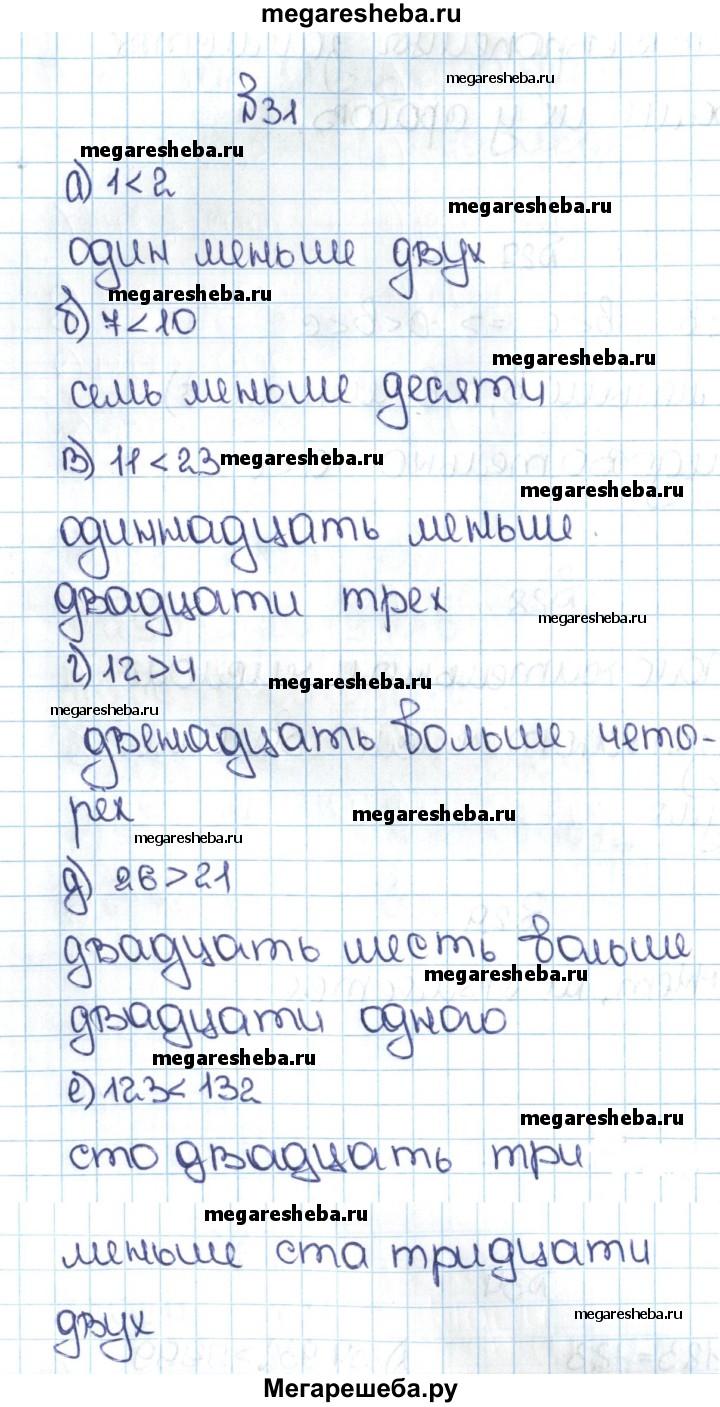 megaresheba.ru
megaresheba.ru
№31
megaresheba.ru
а) 1<2
megaresheba.ru
один меньше двух
megaresheba.ru
б) 7<10
megaresheba.ru
семь меньше десяти
в) 11<23
megaresheba.ru
megaresheba.ru
одиннадцать меньше
двадцати трех
megaresheba.ru
г) 12>4
megaresheba.ru
megaresheba.ru
двенадцать больше четы-
рёх
megaresheba.ru
megaresheba.ru
д) 26>21
двадцать шесть больше
megaresheba.ru
двадцати одного
megaresheba.ru
е) 123<132
megaresheba.ru
сто двадцать три
megaresheba.ru
меньше ста тридцати
megaresheba.ru
двух
Мегарешеба.ру